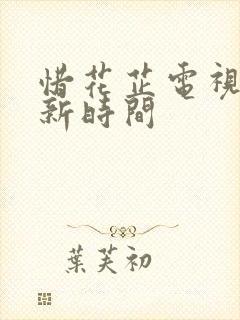 惜花芷電視
新時間
葉芙初